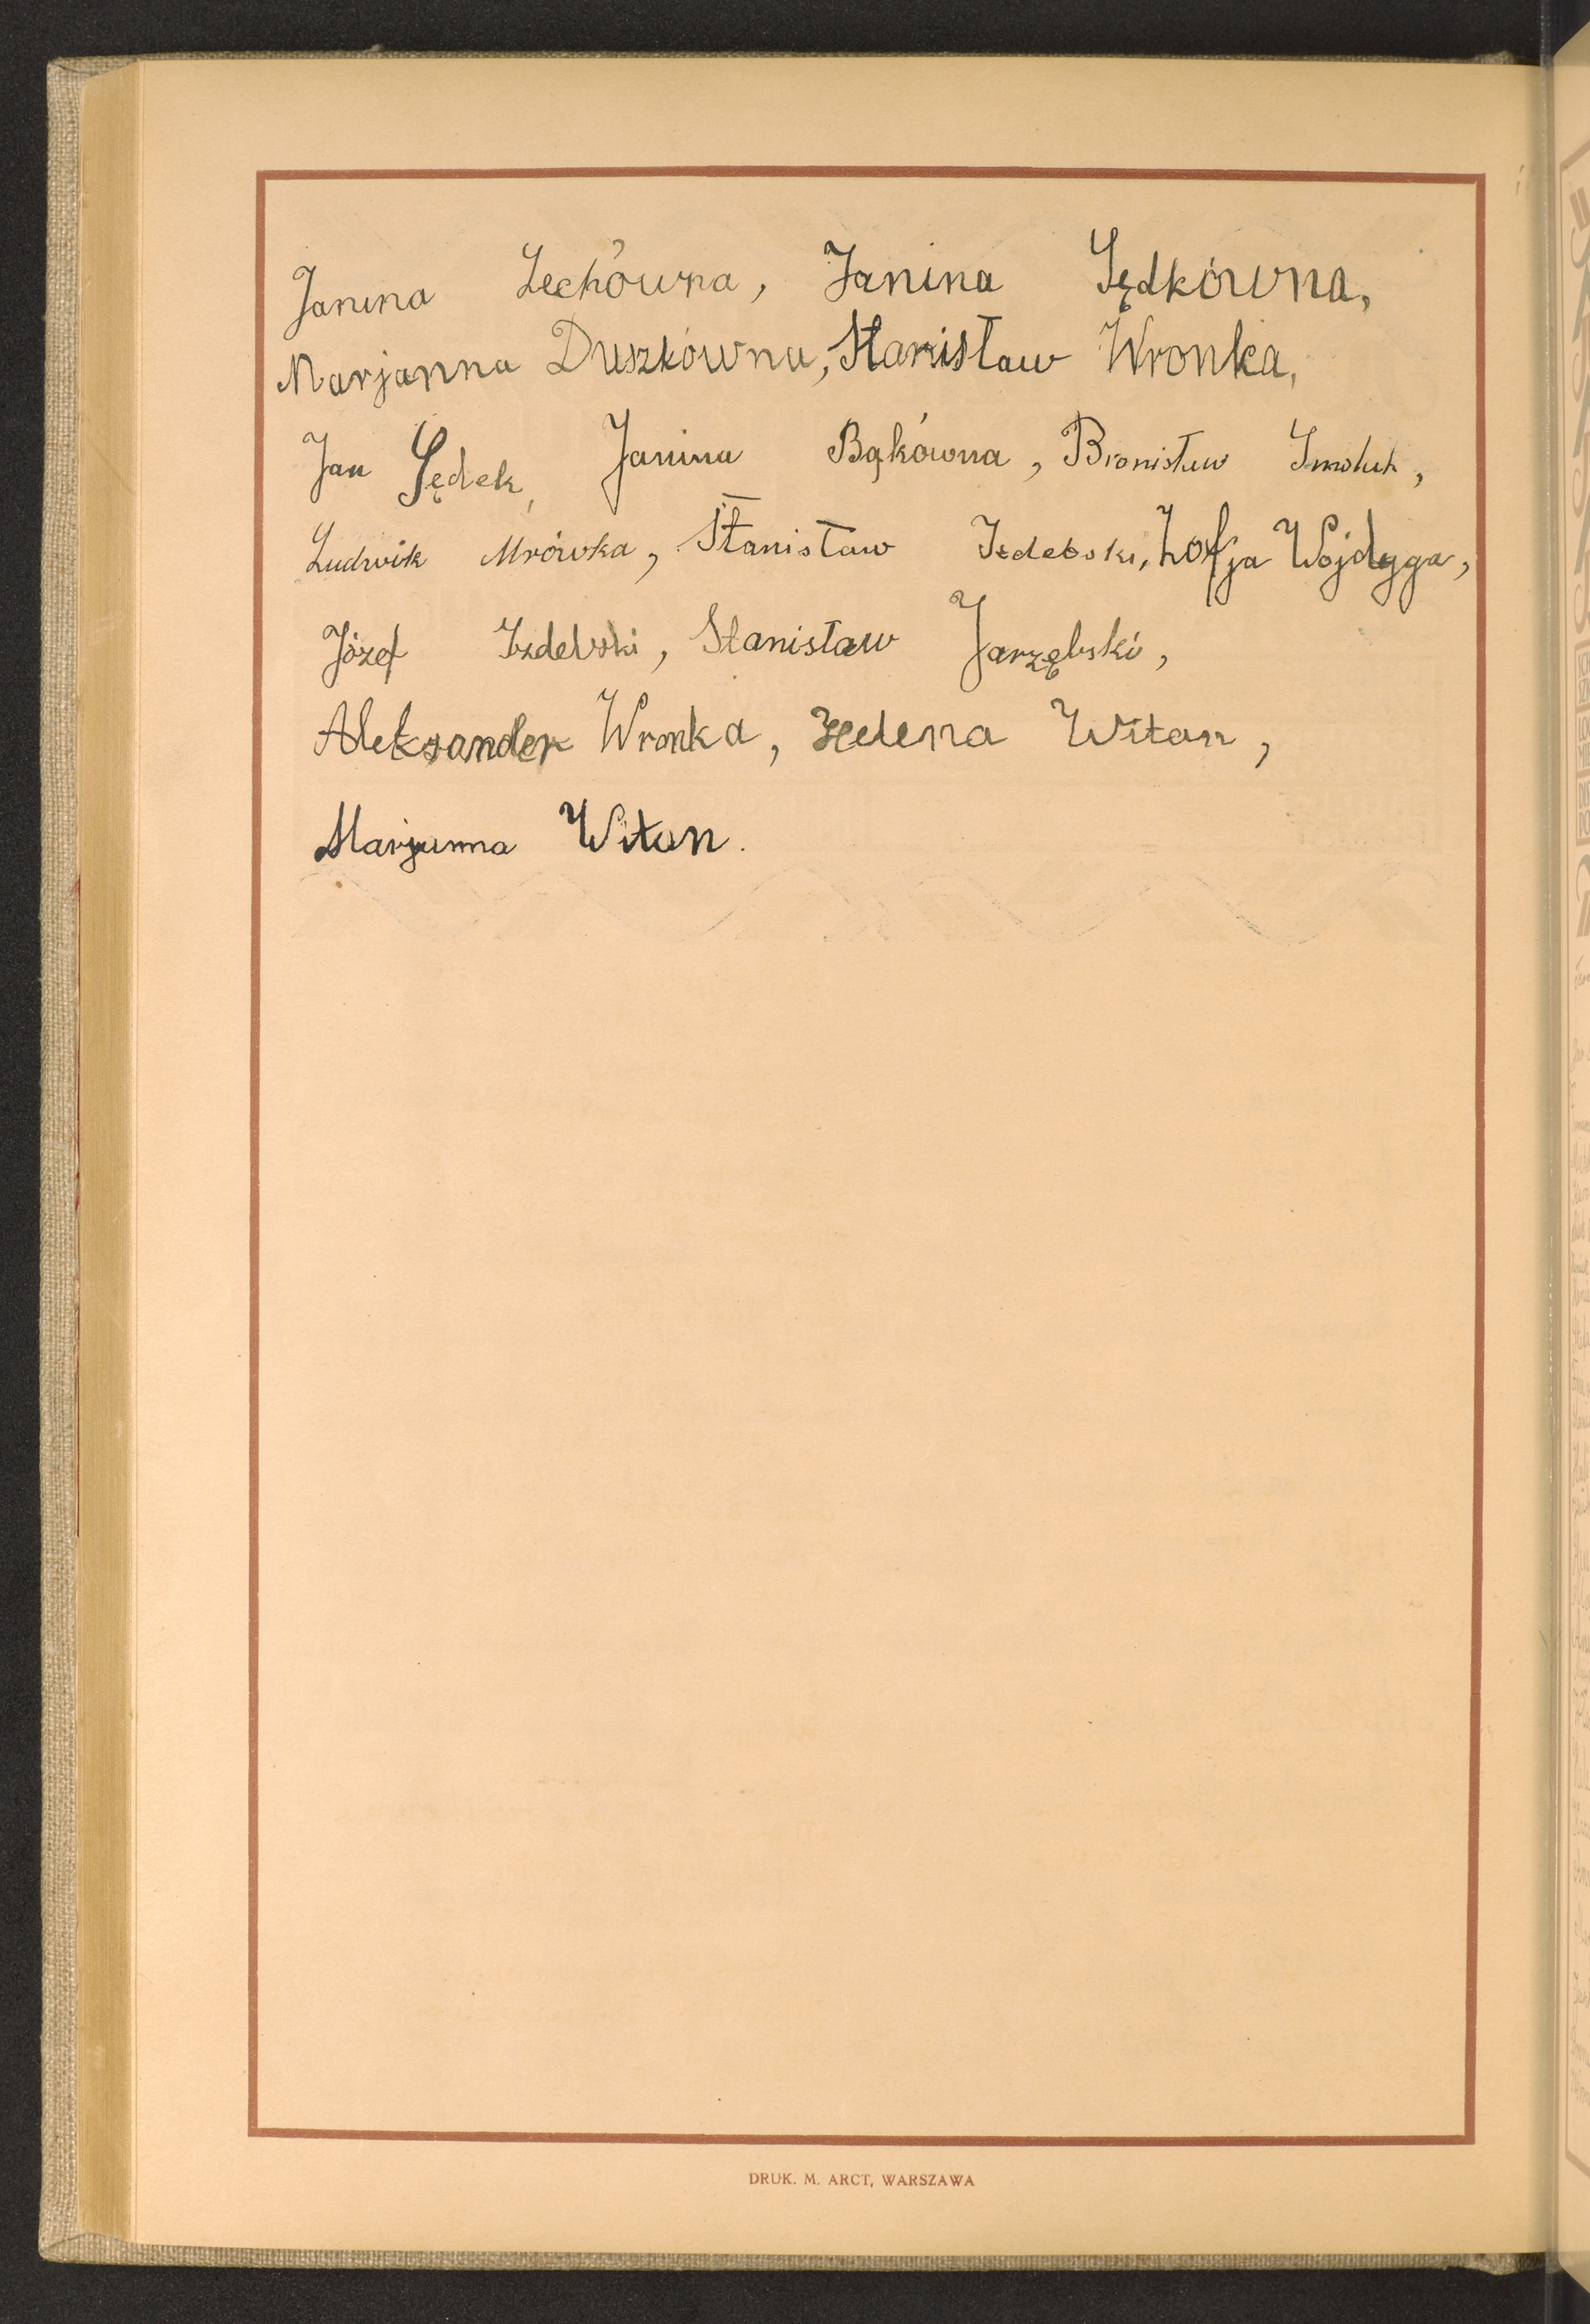 Janina Lechówna, Janina Sędkówna,
Marjanna Duszkówna, Stanisław Wronka,
Jan Sędek, Janina Bąkówna, Bronisław Smoluk,
Ludwik Mrówka, Stanisław Izdebski, Zofja Wojdyga,
Józef Izdebski, Stanisław Jarzębski,
Aleksander Wronka, Helena Witan,
Marjanna Witan.
DRUK. M. ARCT, WARSZAWA